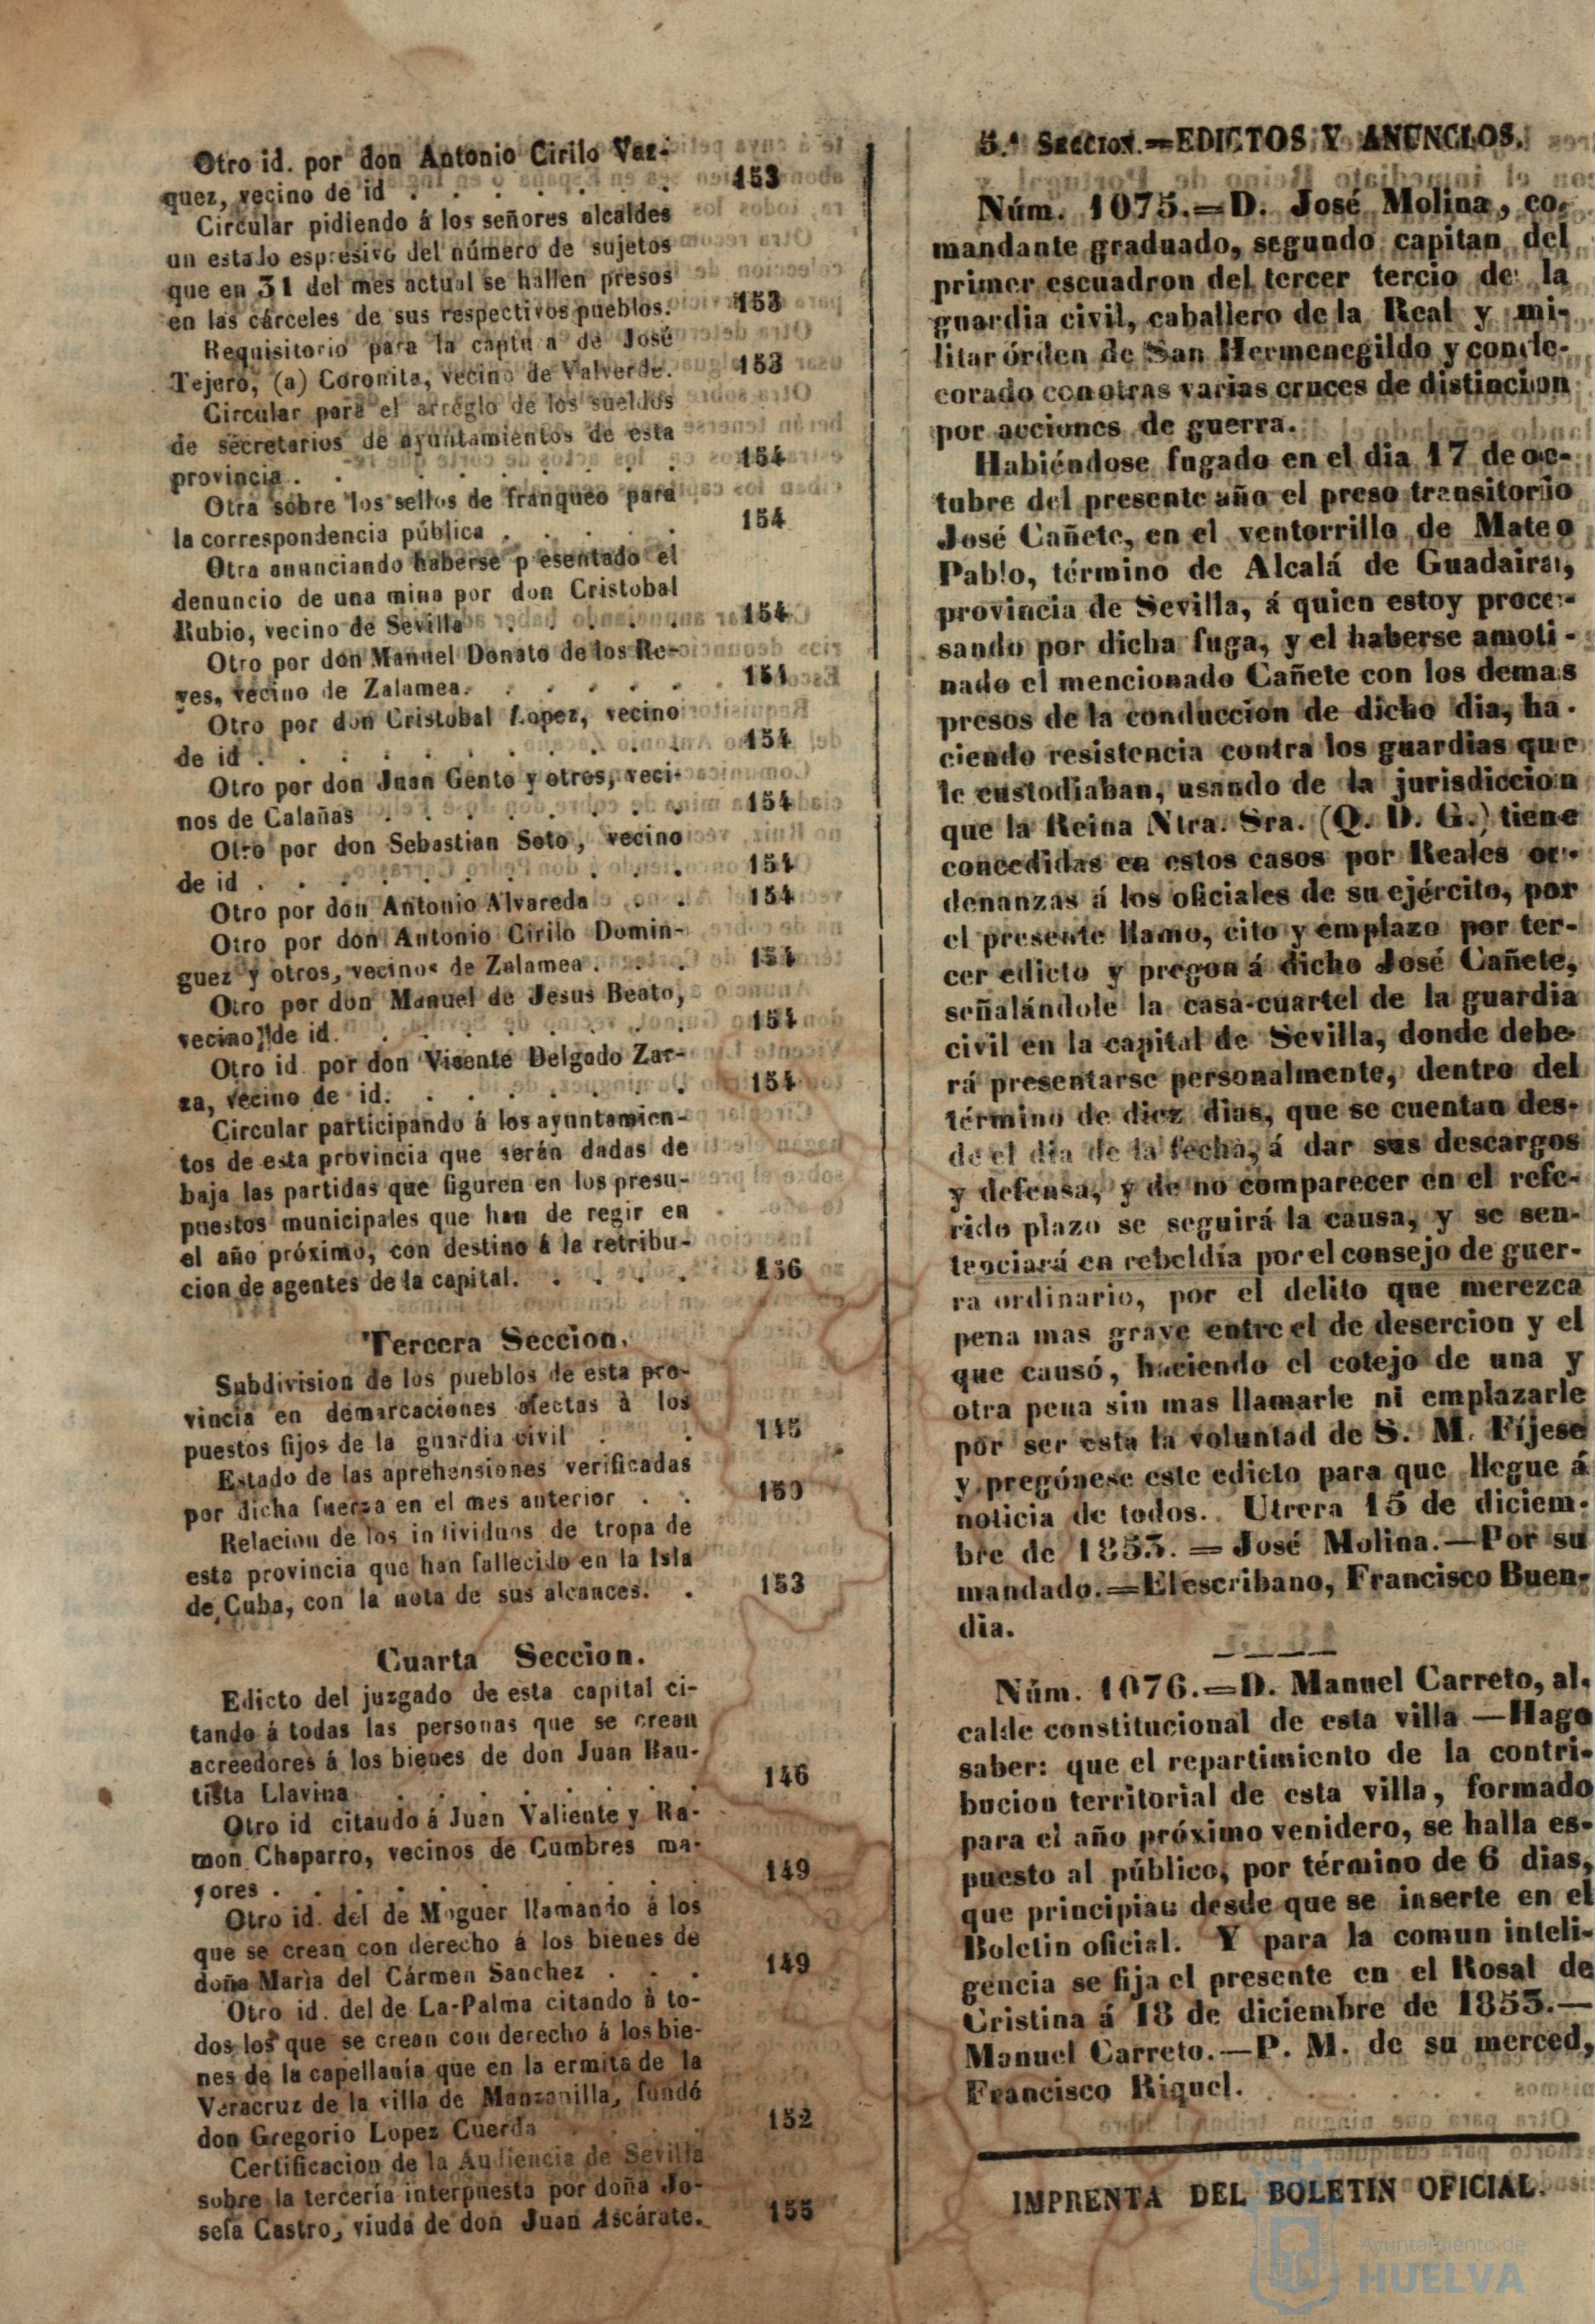 Otro id. por don Antonio Cirilo Vaz-
quez, vecino de id . . . . . . . 153
Circular pidiendo á los señores alcaldes
un estado espresivo del número de sujetos
que en 31 del mes actual se hallen presos
en las cárceles de sus respectivos pueblos. 153
Requisitorio para la captu a de José
Tejero, (a) Coronita, vecino de Valverde. 153
Circular para el arreglo de los sueldos
de secretarios de ayuntamientos de esta
provincia . . . . . . . . . 154
Otra sobre los sellos de franqueo para
la correspondencia pública . . . . . 154
Otra anunciando haberse p esentado el
denuncio de una mina por don Cristobal
Rubio, vecino de Sevilla . . . . . 154
Otro por don Manuel Donato de los Re-
yes, vecino de Zalamea. . . . . . . 154
Otro por don Cristobal Lopez, vecino
de id . . . . . . . . . . . 154
Otro por don Juan Gento y otros, veci-
nos de Calañas . . . . . . . . 154
Otro por don Sebastian Soto, vecino
de id . . . . . . . . . . . 154
Otro por don Antonio Alvareda . . 154
Otro por don Antonio Cirilo Domin-
guez y otros, vecinos de Zalamea . . . 154
Otro por don Manuel de Jesus Beato,
vecino de id. . . . . . . . . 154
Otro id. por don Vicente Delgado Zar-
za, vecino de id. . . . . . . . 154
Circular participando á los ayuntamien-
tos de esta provincia que serán dadas de
baja las partidas que figuren en los presu-
puestos municipales que han de regir en
el año próximo, con destino á la retribu-
cion de agentes de la capital. . . . . 156
Tercera Seccion.
Subdivision de los pueblos de esta pro-
vincia en demarcaciones afectas à los
puestos fijos de la guardia civil . . 145
Estado de las aprehensiones verificadas
por dicha fuerza en el mes anterior . . 150
Relacion de los individuos de tropa de
esta provincia que han fallecido en la Isla
de Cuba, con la nota de sus alcances. . 153
Cuarta Seccion.
Edicto del juzgado de esta capital ci-
tando á todas las personas que se crean
acreedores á los bienes de don Juan Bau-
tista Llavina . . . . . . . . 146
Otro id citando á Juan Valiente y Ra-
mon Chaparro, vecinos de Cumbres ma-
yores . . . . . . . . . . . 149
Otro id. del de Moguer llamando á los
que se crean con derecho á los bienes de
doña Marìa del Cármen Sanchez . . . 149
Otro id. del de La-Palma citando à to-
dos los que se crean con derecho á los bie-
nes de la capellanía que en la ermita de la
Veracruz de la villa de Manzanilla, fundó
don Gregorio Lopez Cuerda . . . 152
Certificacion de la Audiencia de Sevilla
sobre la tercería interpuesta por doña Jo-
sefa Castro, viuda de don Juan Ascárate. 155
5.ª Seccion.=EDICTOS Y ANUNCIOS.
Núm. 1075.=D. José Molina, co-
mandante graduado, segundo capitan del
primer escuadron del tercer tercio de la
guardia civil, caballero de la Real y mi-
litar órden de San Hermenegildo y conde-
corado con otras varias cruces de distincion
por acciones de guerra.
Habiéndose fugado en el dia 17 de oc-
tubre del presente año el preso transitorio
José Cañete, en el ventorrillo de Mateo
Pablo, término de Alcalá de Guadaira,
provincia de Sevilla, á quien estoy proce-
sando por dicha fuga, y el haberse amoti-
nado el mencionado Cañete con los demas
presos de la conduccion de dicho dia, ha-
ciendo resistencia contra los guardias que
le custodiaban, usando de la jurisdiccion
que la Reina Ntra. Sra. (Q. D. G.) tiene
concedidas en estos casos por Reales or-
denanzas á los oficiales de su ejército, por
el presente llamo, cito y emplazo por ter-
cer edicto y pregon á dicho José Cañete,
señalándole la casa-cuartel de la guardia
civil en la capital de Sevilla, donde debe-
rá presentarse personalmente, dentro del
término de diez dias, que se cuentan des-
de el dia de la fecha, á dar sus descargos
y defensa, y de no comparecer en el refe-
rido plazo se seguirá la causa, y se sen-
tenciará en rebeldía por el consejo de guer-
ra ordinario, por el delito que merezca
pena mas grave entre el de desercion y el
que causó, haciendo el cotejo de una y
otra pena sin mas llamarle ni emplazarle
por ser esta la voluntad de S. M. Fíjese
y pregónese este edicto para que llegue á
noticia de todos. Utrera 15 de diciem-
bre de 1853. = José Molina.—Por su
mandado.=El escribano, Francisco Buen-
dia.
Núm. 1076.=D. Manuel Carreto, al-
calde constitucional de esta villa —Hago
saber: que el repartimiento de la contri-
bucion territorial de esta villa, formado
para el año próximo venidero, se halla es-
puesto al público, por término de 6 dias,
que principian desde que se inserte en el
Boletin oficial. Y para la comun inteli-
gencia se fija el presente en el Rosal de
Cristina á 18 de diciembre de 1853.—
Manuel Carreto.—P. M. de su merced,
Francisco Riquel.
IMPRENTA DEL BOLETIN OFICIAL.
Ayuntamiento de
HUELVA